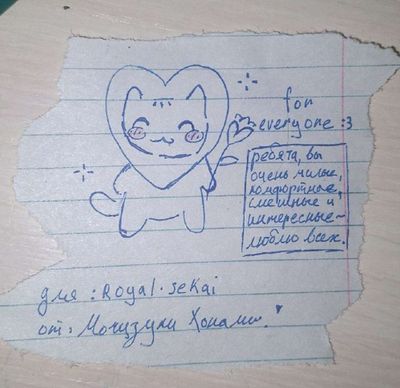 for
everyone :3
ребята, вы
очень милые,
комфортные,
смешные и
интересные~
люблю всех.
для : Royal·sekai
от: Мочизуки Хонами.